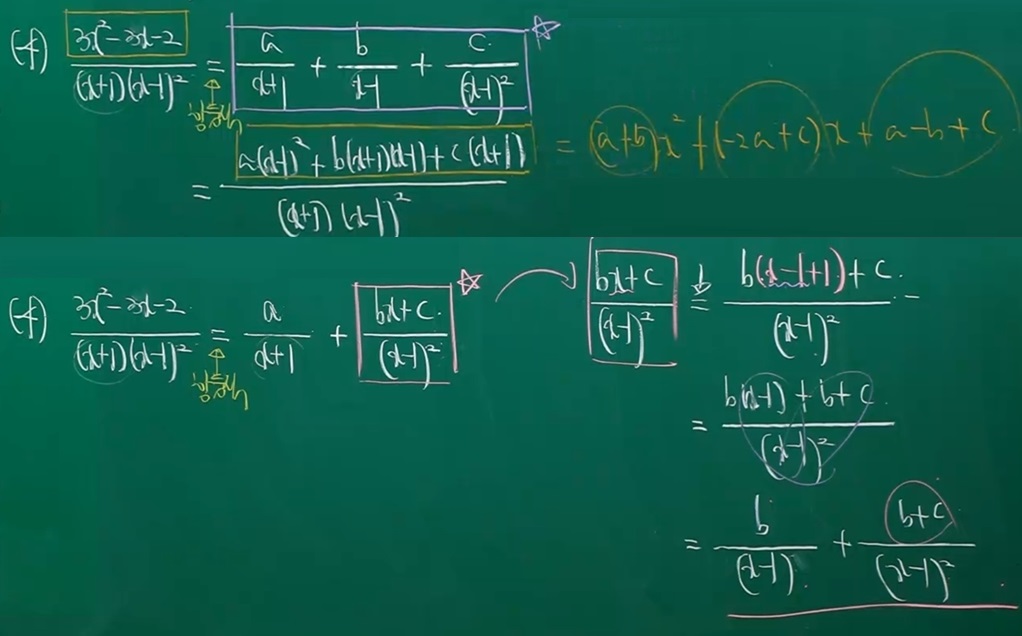 (f) \frac{3x^2-3x-2}{(x+1)(x-1)^2} = \frac{a}{x+1} + \frac{b}{x-1} + \frac{c}{(x-1)^2} ☆
= \frac{a(x-1)^2+b(x+1)(x-1)+c(x+1)}{(x+1)(x-1)^2} = (a+b)x^2+(-2a+c)x+a-b+c
(f) \frac{3x^2-3x-2}{(x+1)(x-1)^2} = \frac{a}{x+1} + \frac{bx+c}{(x-1)^2} ☆
\frac{bx+c}{(x-1)^2} = \frac{b(x-1+1)+c}{(x-1)^2}
= \frac{b(x-1)+b+c}{(x-1)^2}
= \frac{b}{(x-1)} + \frac{b+c}{(x-1)^2}